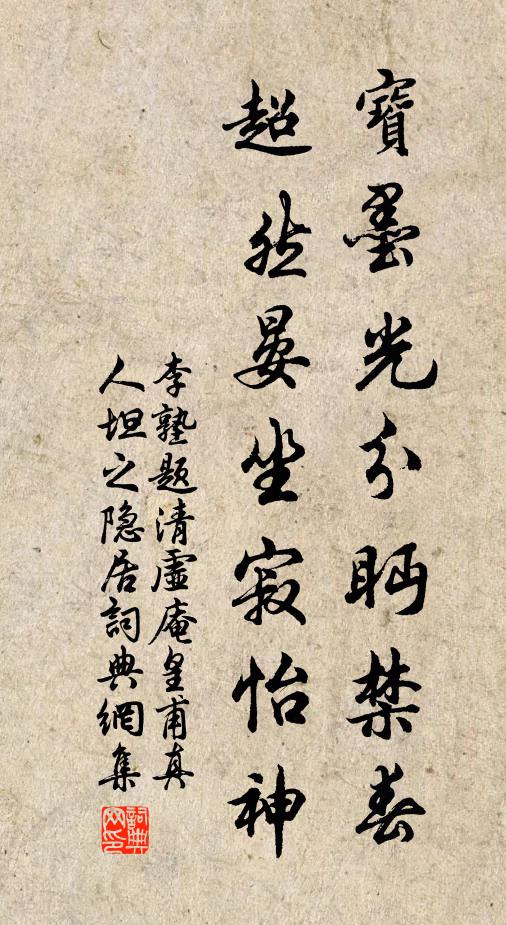 寶墨光分眄禁春
超然晏坐寂怡神
李塾题清虛庵皇甫真
人坦之隐居詞典網集
詞典
网印